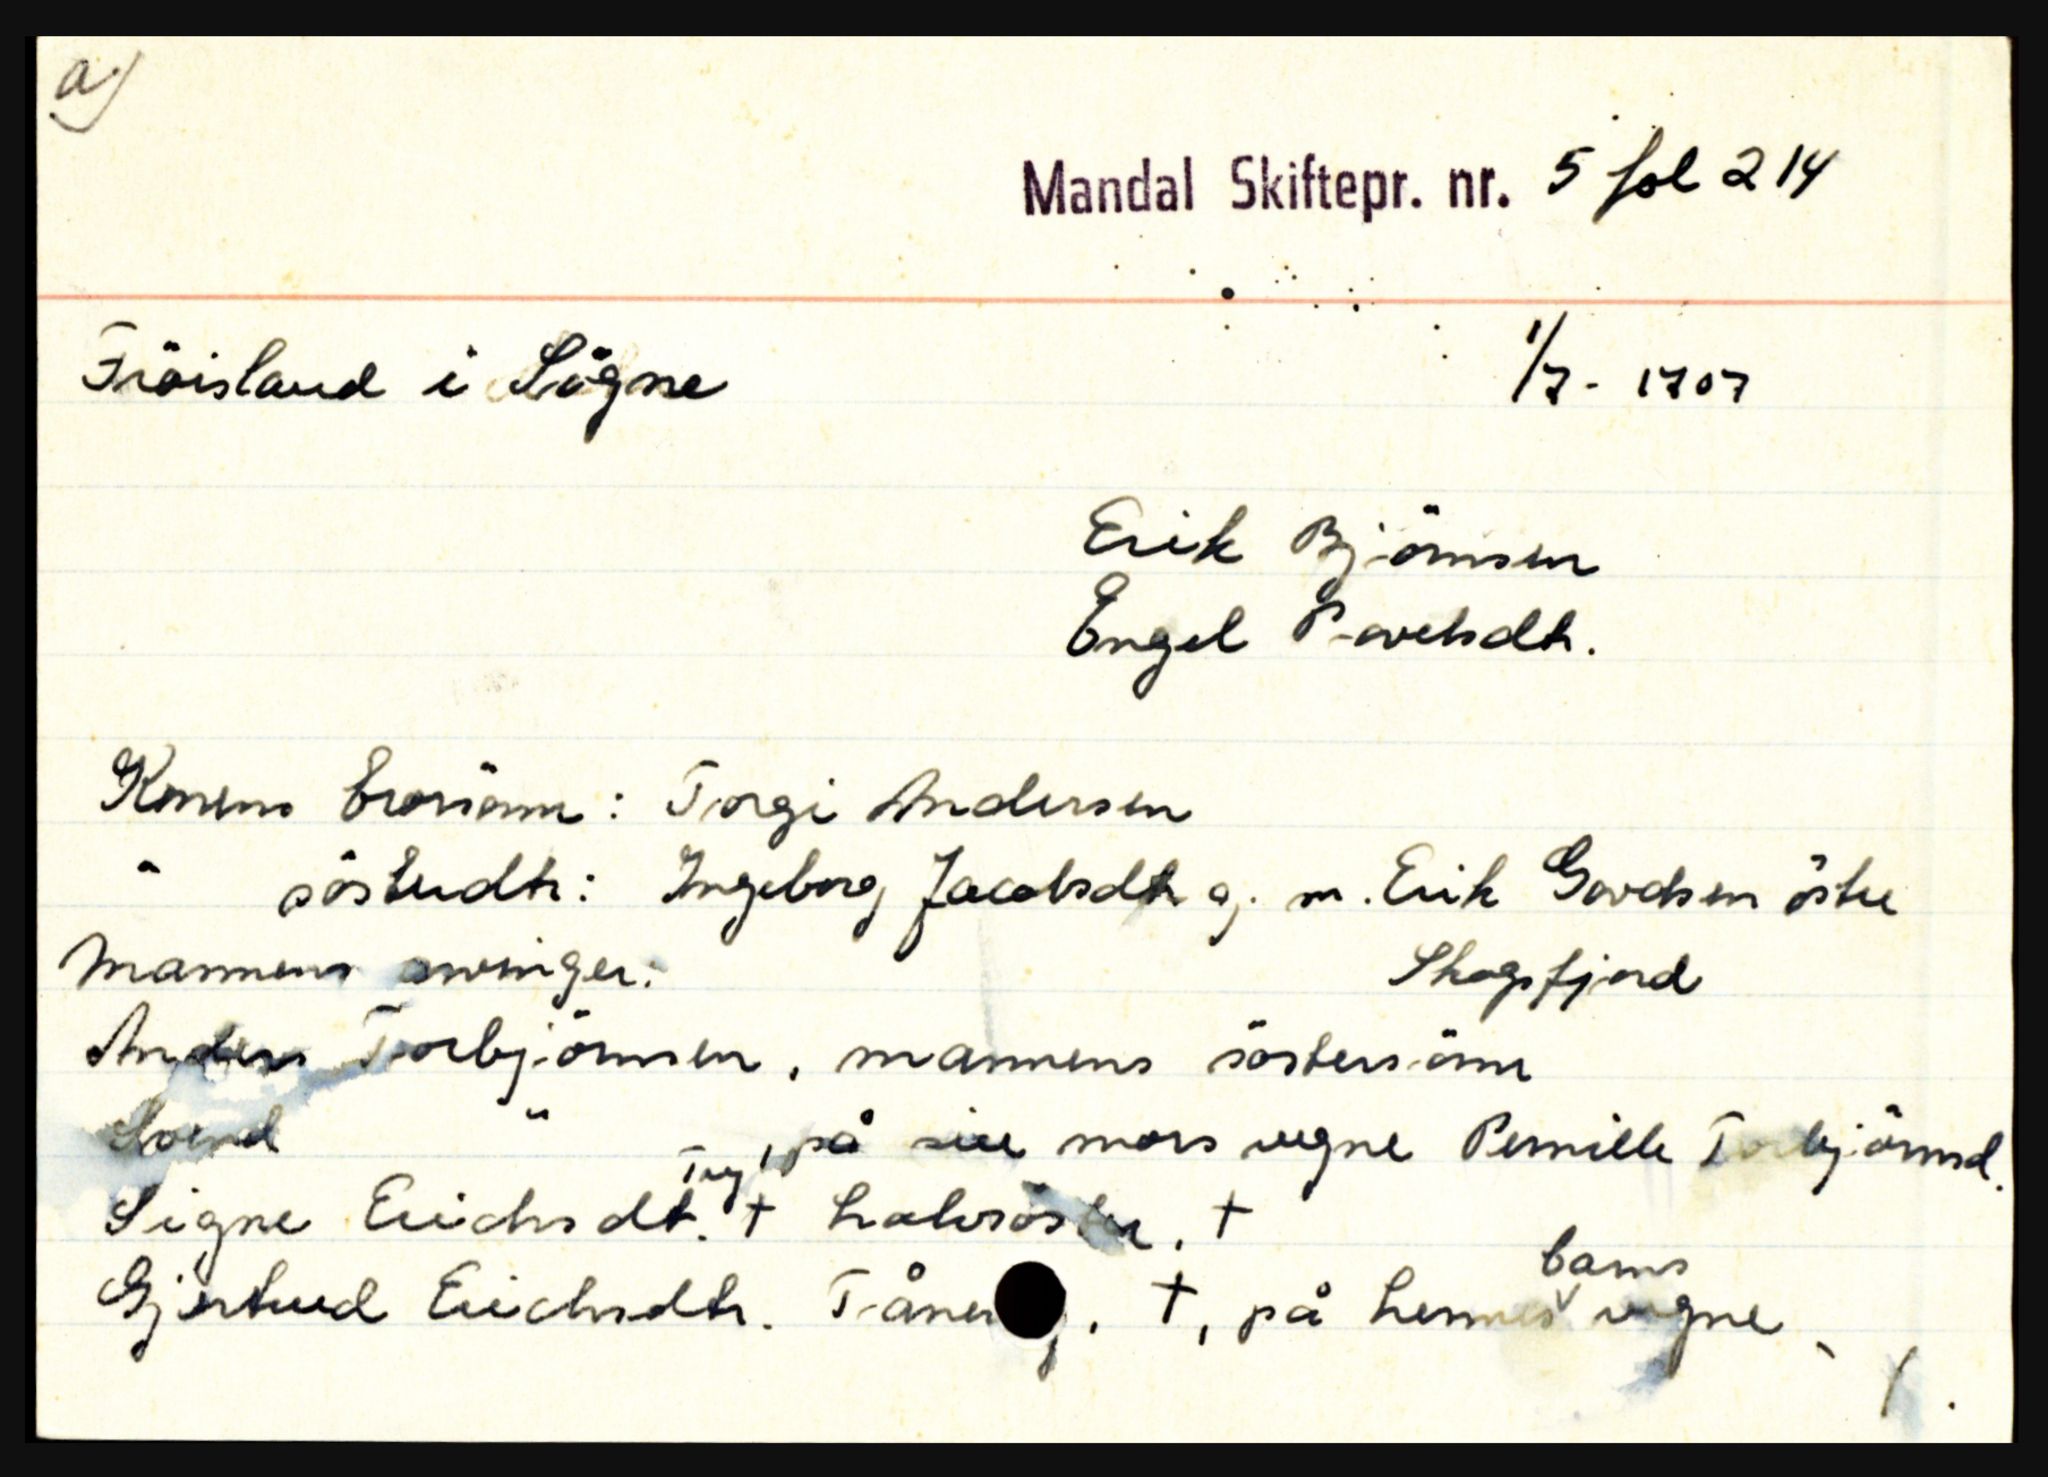 a)
Mandal Skiftepr. nr. 5 fol 214
Fröisland i Sögne 1/7-1707
Erik Björnsen
Engel Povelsdtr.
Konens brorsönn: Torgi Andersen
" söstudtr: Ingeborg Jacobsdtr g. m. Erik Govdsen östre
Skogsfjord
Mannens arvinger:
Anders Torbjörnsen, mannens söstersönn
Svend " , på sine mors vegne Pernille Torbjörnsd.
Signe Erichsdt. Try † halvsöster. †
Gjertrud Erichsdtr. †, på hennes barns vegne